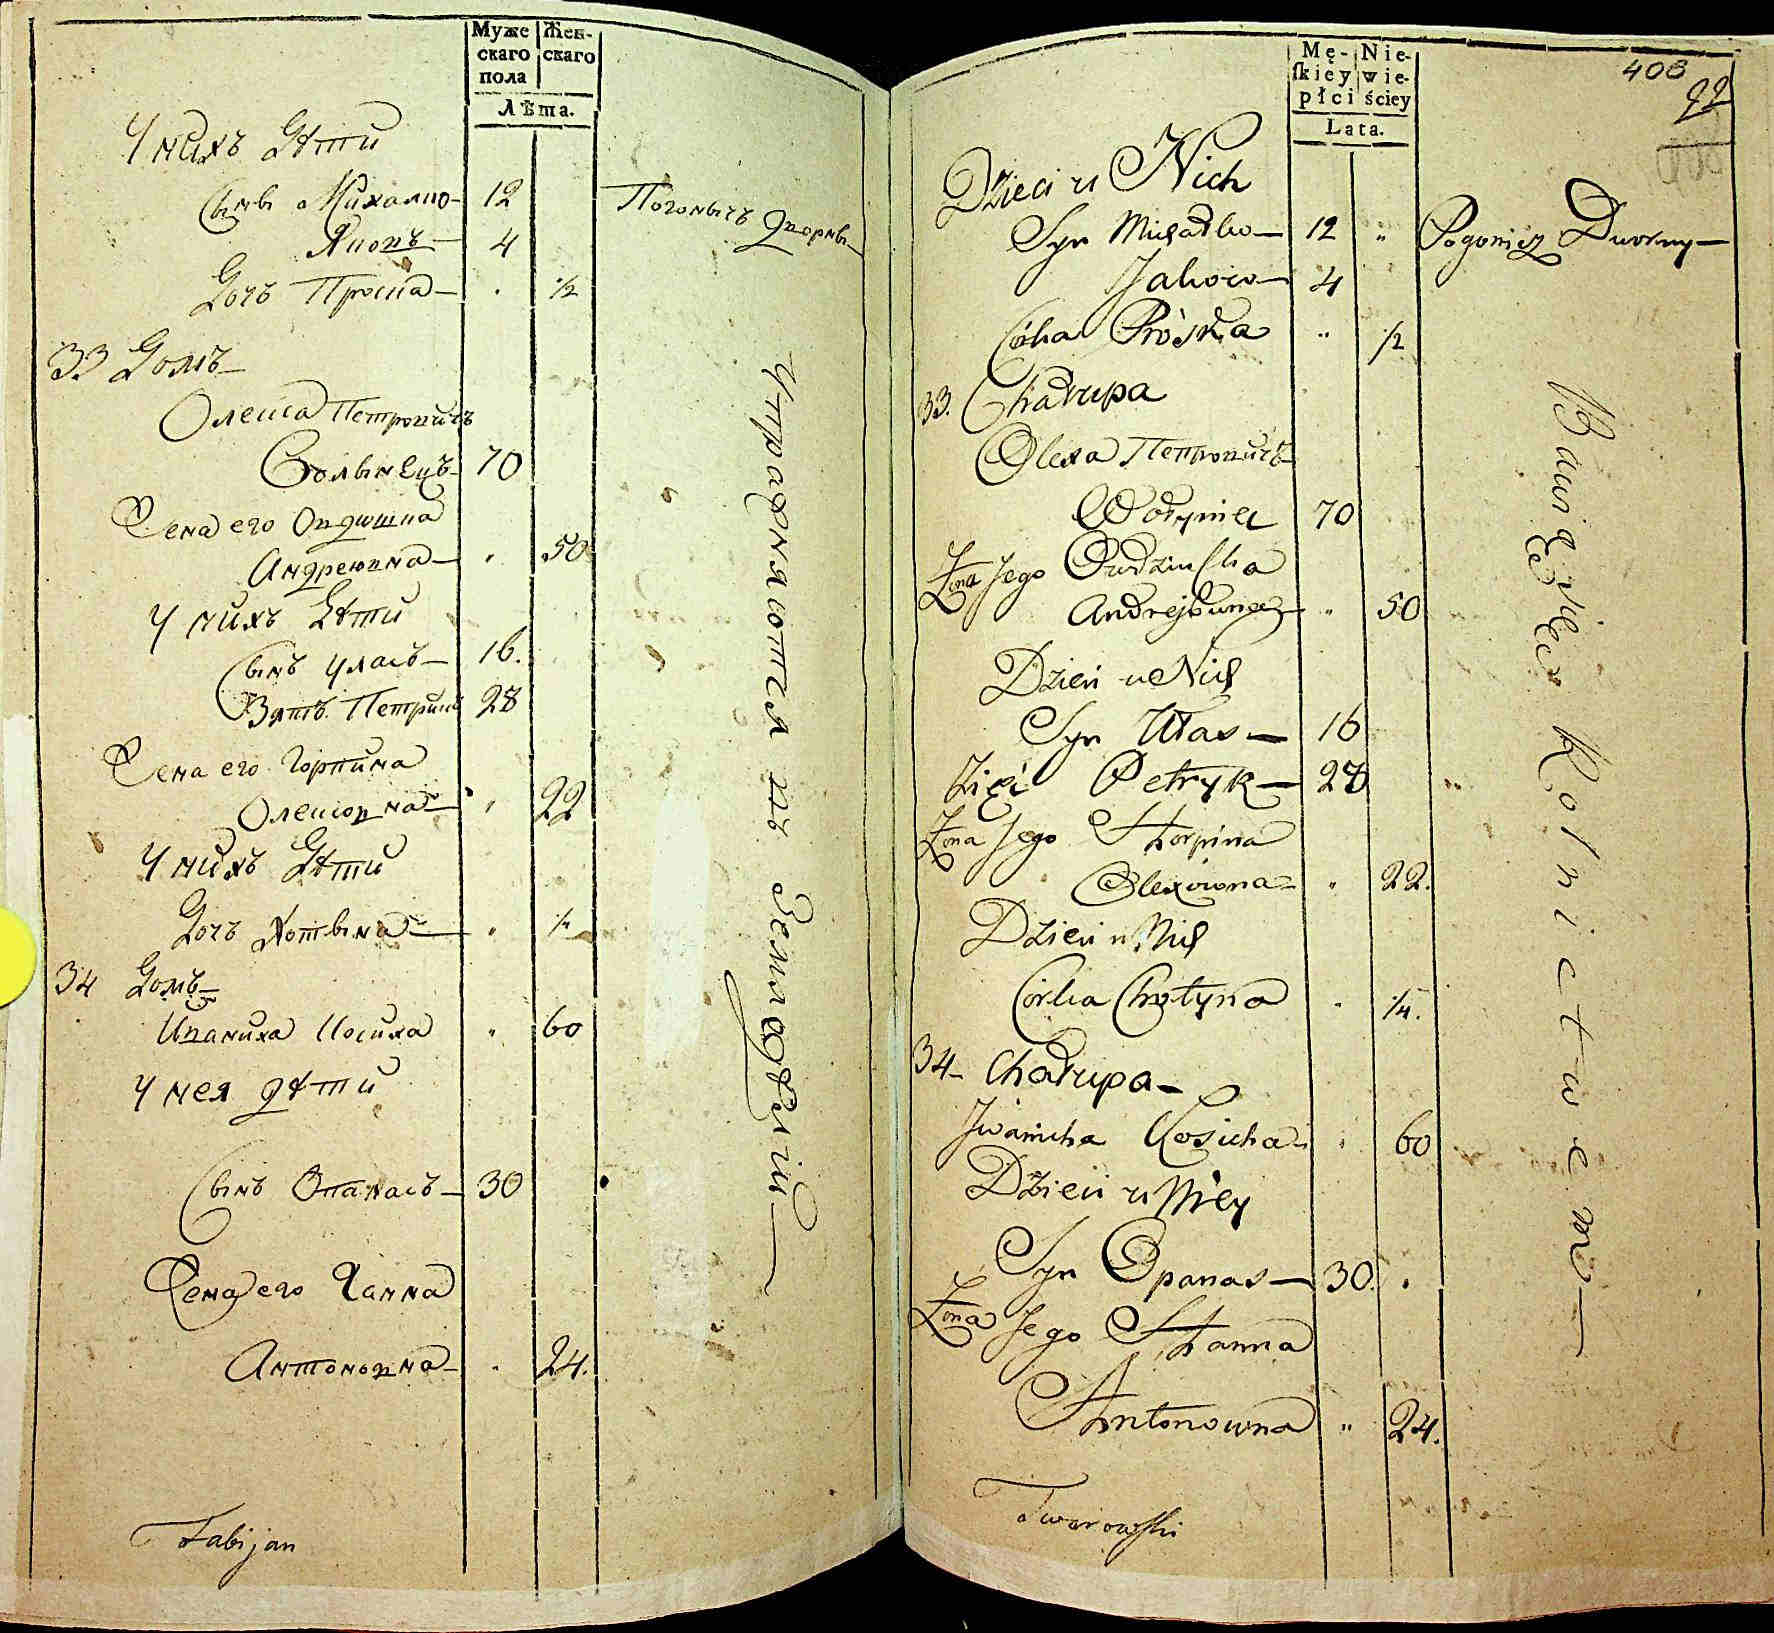 Муже
скаго
пола
Жен-
скаго
Лѣта.
У нихъ Дѣти
Сынъ Михайло 12 Погоничъ Дворны
Яковъ 4
Дочь Проска 1/2
33 Домъ
Олекса Петровичъ
Волынецъ 70
Жена его Овдюшка
Андреювна 50
У нихъ Дѣти
Сынъ Уласъ 16.
Зять Петрикъ 28
Жена его Горпина
Олексовна 22
У нихъ Дѣти
Дочь Хотына 1/4
34 Домъ
Иваниха Косиха 60
У нея дѣти
Сынъ Опанасъ 30
Жена его Ганна
Антоновна 24.
Упражняются въ Земледѣлiи
Fabijan
Mę-
skiey
płci
Nie-
wie-
ściey
Lata.
408
92
Dzieci u Nich
Syn Michadło 12 „ Pogonicz Dworny
Jakow 4
Córka Próska „ 1/2
33. Chałupa
Olexa Петровичъ
Wołyniec 70
Żona Jego Owdziuszka
Andrejowna „ 50
Dzieci u Nich
Syn Ułas 16
Zięć Petryk 28
Żona Jego Horpina
Olexowna „ 22.
Dzieci u Nich
Córka Chotyna 1/4.
34 Chałupa
Iwanicha Kosicha „ 60
Dzieci u Niey
Syn Opanas 30.
Żona Jego Hanna
Antonowna „ 24.
Bawią się Rolnictwem
Tworowski